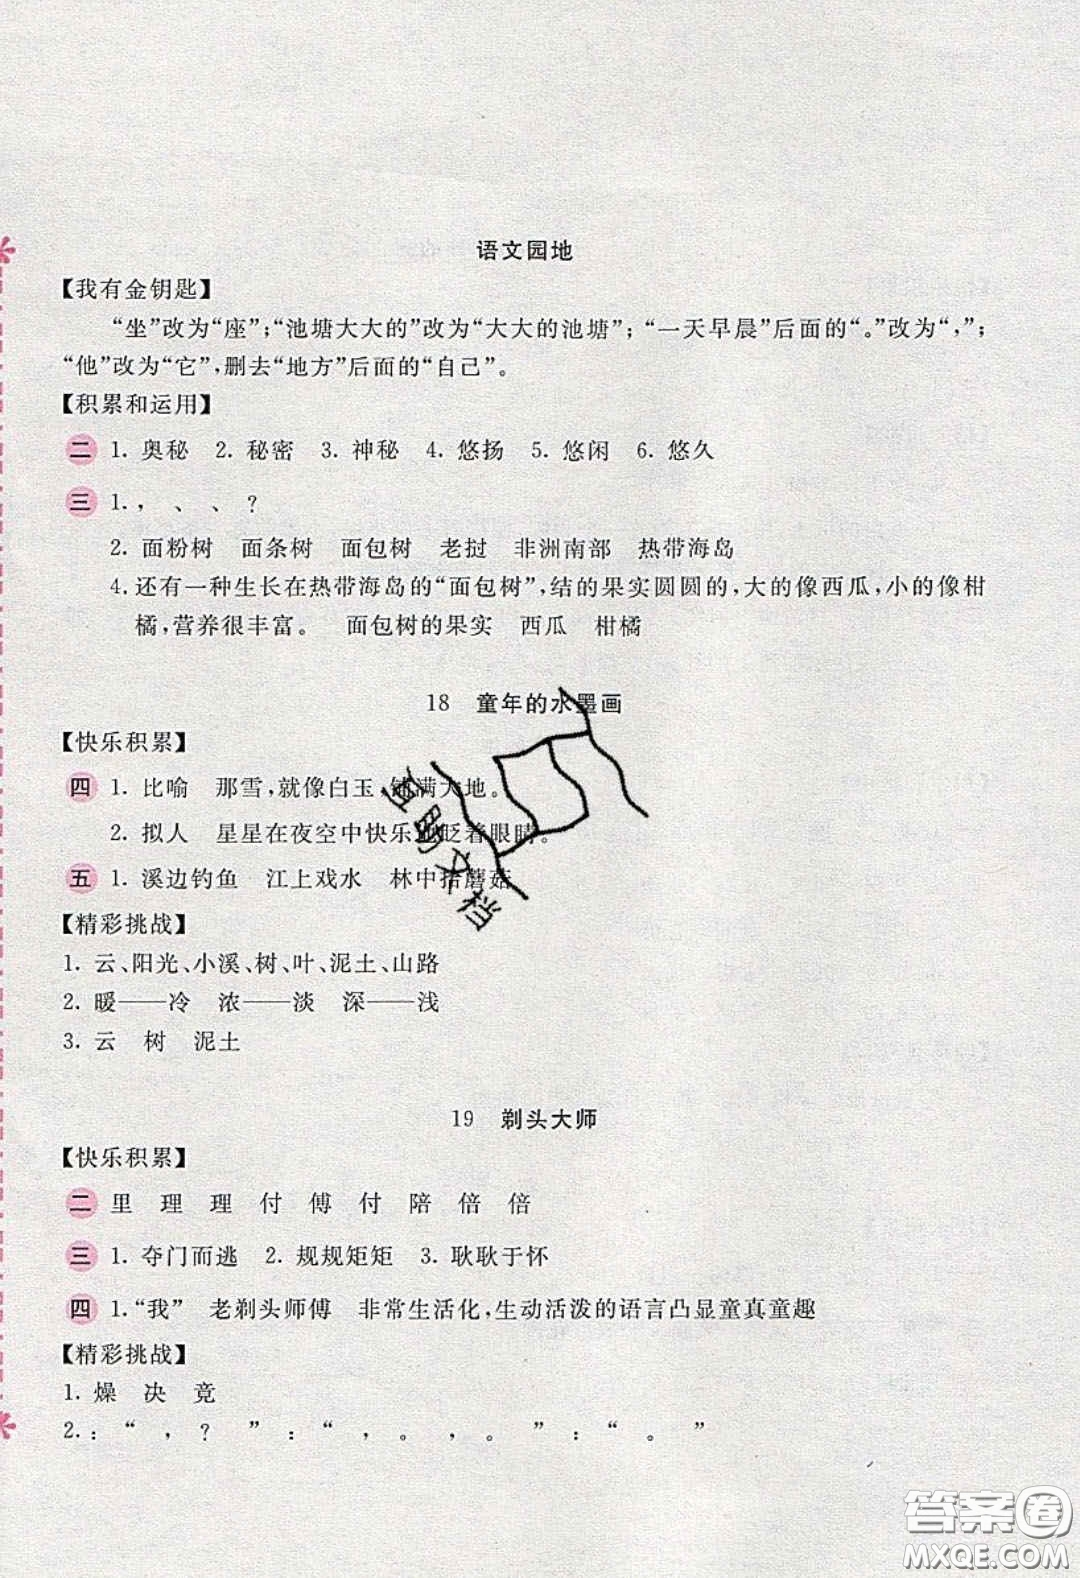 语文园地
【我有金钥匙】
“坐”改为“座”；“池塘大大的”改为“大大的池塘”；“一天早晨”后面的“。”改为“，”；
“他”改为“它”，删去“地方”后面的“自己”。
【积累和运用】
二 1. 奥秘 2. 秘密 3. 神秘 4. 悠扬 5. 悠闲 6. 悠久
三 1. ， 、 、 ？
2. 面粉树 面条树 面包树 老挝 非洲南部 热带海岛
4. 还有一种生长在热带海岛的“面包树”，结的果实圆圆的，大的像西瓜，小的像柑
橘，营养很丰富。 面包树的果实 西瓜 柑橘
18 童年的水墨画
【快乐积累】
四 1. 比喻 那雪，就像白玉，铺满大地。
2. 拟人 星星在夜空中快乐地眨着眼睛。
五 1. 溪边钓鱼 江上戏水 林中拾蘑菇
【精彩挑战】
1. 云、阳光、小溪、树、叶、泥土、山路
2. 暖——冷 浓——淡 深——浅
3. 云 树 泥土
19 剃头大师
【快乐积累】
二 里 理 理 付 傅 付 陪 倍 倍
三 1. 夺门而逃 2. 规规矩矩 3. 耿耿于怀
四 1. “我” 老剃头师傅 非常生活化，生动活泼的语言凸显童真童趣
【精彩挑战】
1. 燥 决 竟
2. ：“ ， ？ ”：“ ， 。 ， 。 ”：“ 。 ”
作业帮文档
答案圈
MXQE.COM